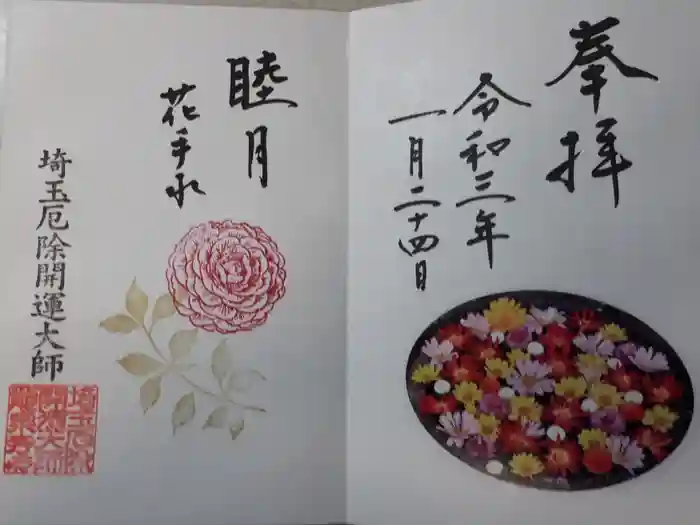 奉拝
令和三年
一月二十四日
睦月
花手水
埼玉厄除開運大師